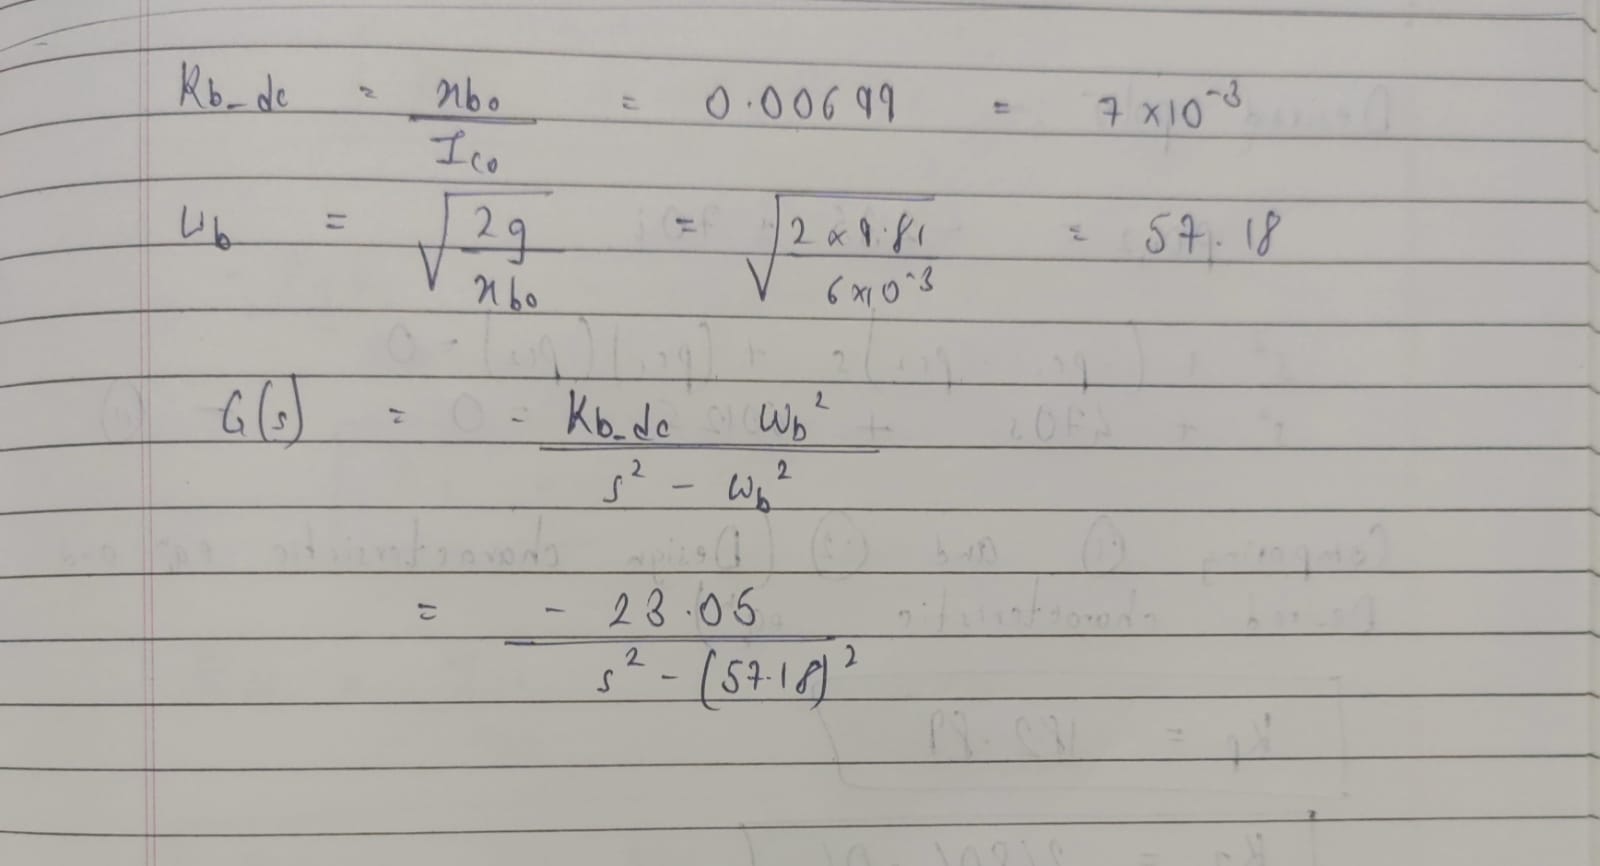 Kb_dc = xb₀/Ic₀ = 0.00699 = 7 x10⁻³
ωb = √(2g/xb₀) = √(2 x 9.81/6x10⁻³) = 57.18
G(s) = - Kb_dc ωb²/(s² - ωb²)
= - 23.05/(s² - (57.18)²)